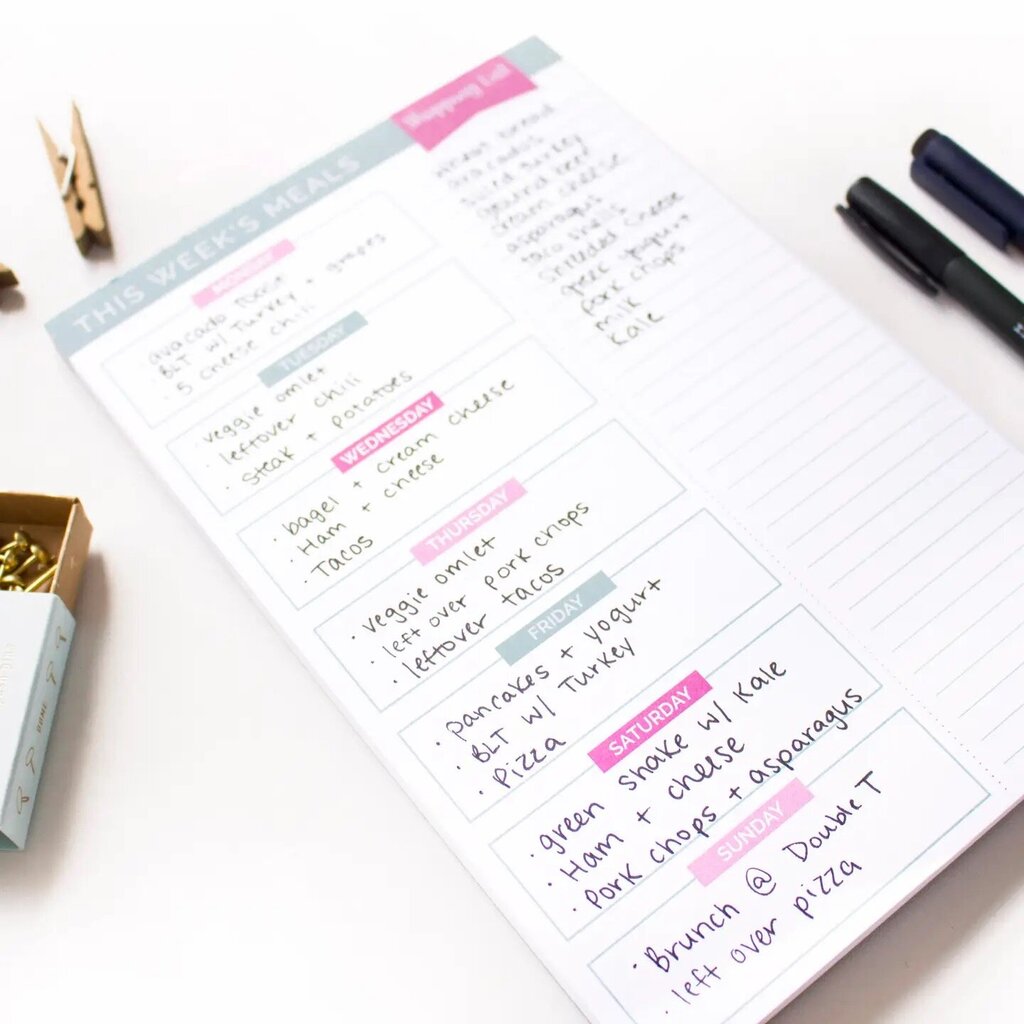 THIS WEEK'S MEALS
MONDAY
avacado toast
BLT w/ Turkey + grapes
5 cheese chili
TUESDAY
veggie omlet
leftover chili
steak + potatoes
WEDNESDAY
bagel + cream cheese
Ham + cheese
Tacos
THURSDAY
veggie omlet
left over pork chops
leftover tacos
FRIDAY
pancakes + yogurt
BLT w/ Turkey
Pizza
SATURDAY
green shake w/ Kale
Ham + cheese
pork chops + asparagus
SUNDAY
Brunch @ Double T
left over pizza
Shopping List
wheat bread
avacados
sliced turkey
ground beef
cream cheese
asparagus
taco shells
shredded cheese
greec yogurt
pork chops
milk
Kale
HOME